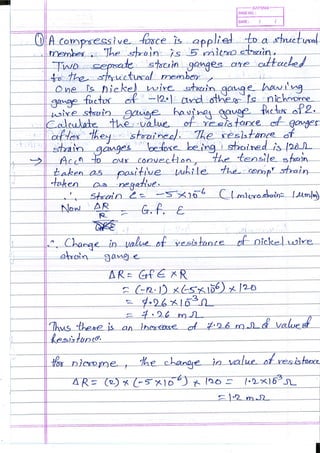 ① A compressive force is applied to a structural
member. The strain is 5 micro strain.
Two seprate strain gauges are attached
to the structural member,
One is nickel wire strain gauge having
gauge factor of -12.1 and other is nichrome
wire strain gauge having gauge factor of 2.
Calculate the value of resistance of gauges
after they strained. The resistance of
strain gauges before being strained is 120 Ω.
→ Acn to our convection, the tensile strain
taken as positive while the comp' strain
taken as negative.
∴ Strain ε = -5×10⁻⁶ (1 microstrain= 1 μm/m)
Now ΔR/R = G.f. ε
∴ Change in value of resistance of nickel wire
strain gauge
ΔR = Gf ε × R
= (-12.1) × (-5×10⁻⁶) × 120
= 7.26×10⁻³Ω
= 7.26 mΩ
Thus there is an increase of 7.26 mΩ of value of
Resistance
for nicrome, the change in value of resistance
ΔR = (2) × (-5×10⁻⁶) × 120 = 1.2×10⁻³Ω
= 1.2 mΩ